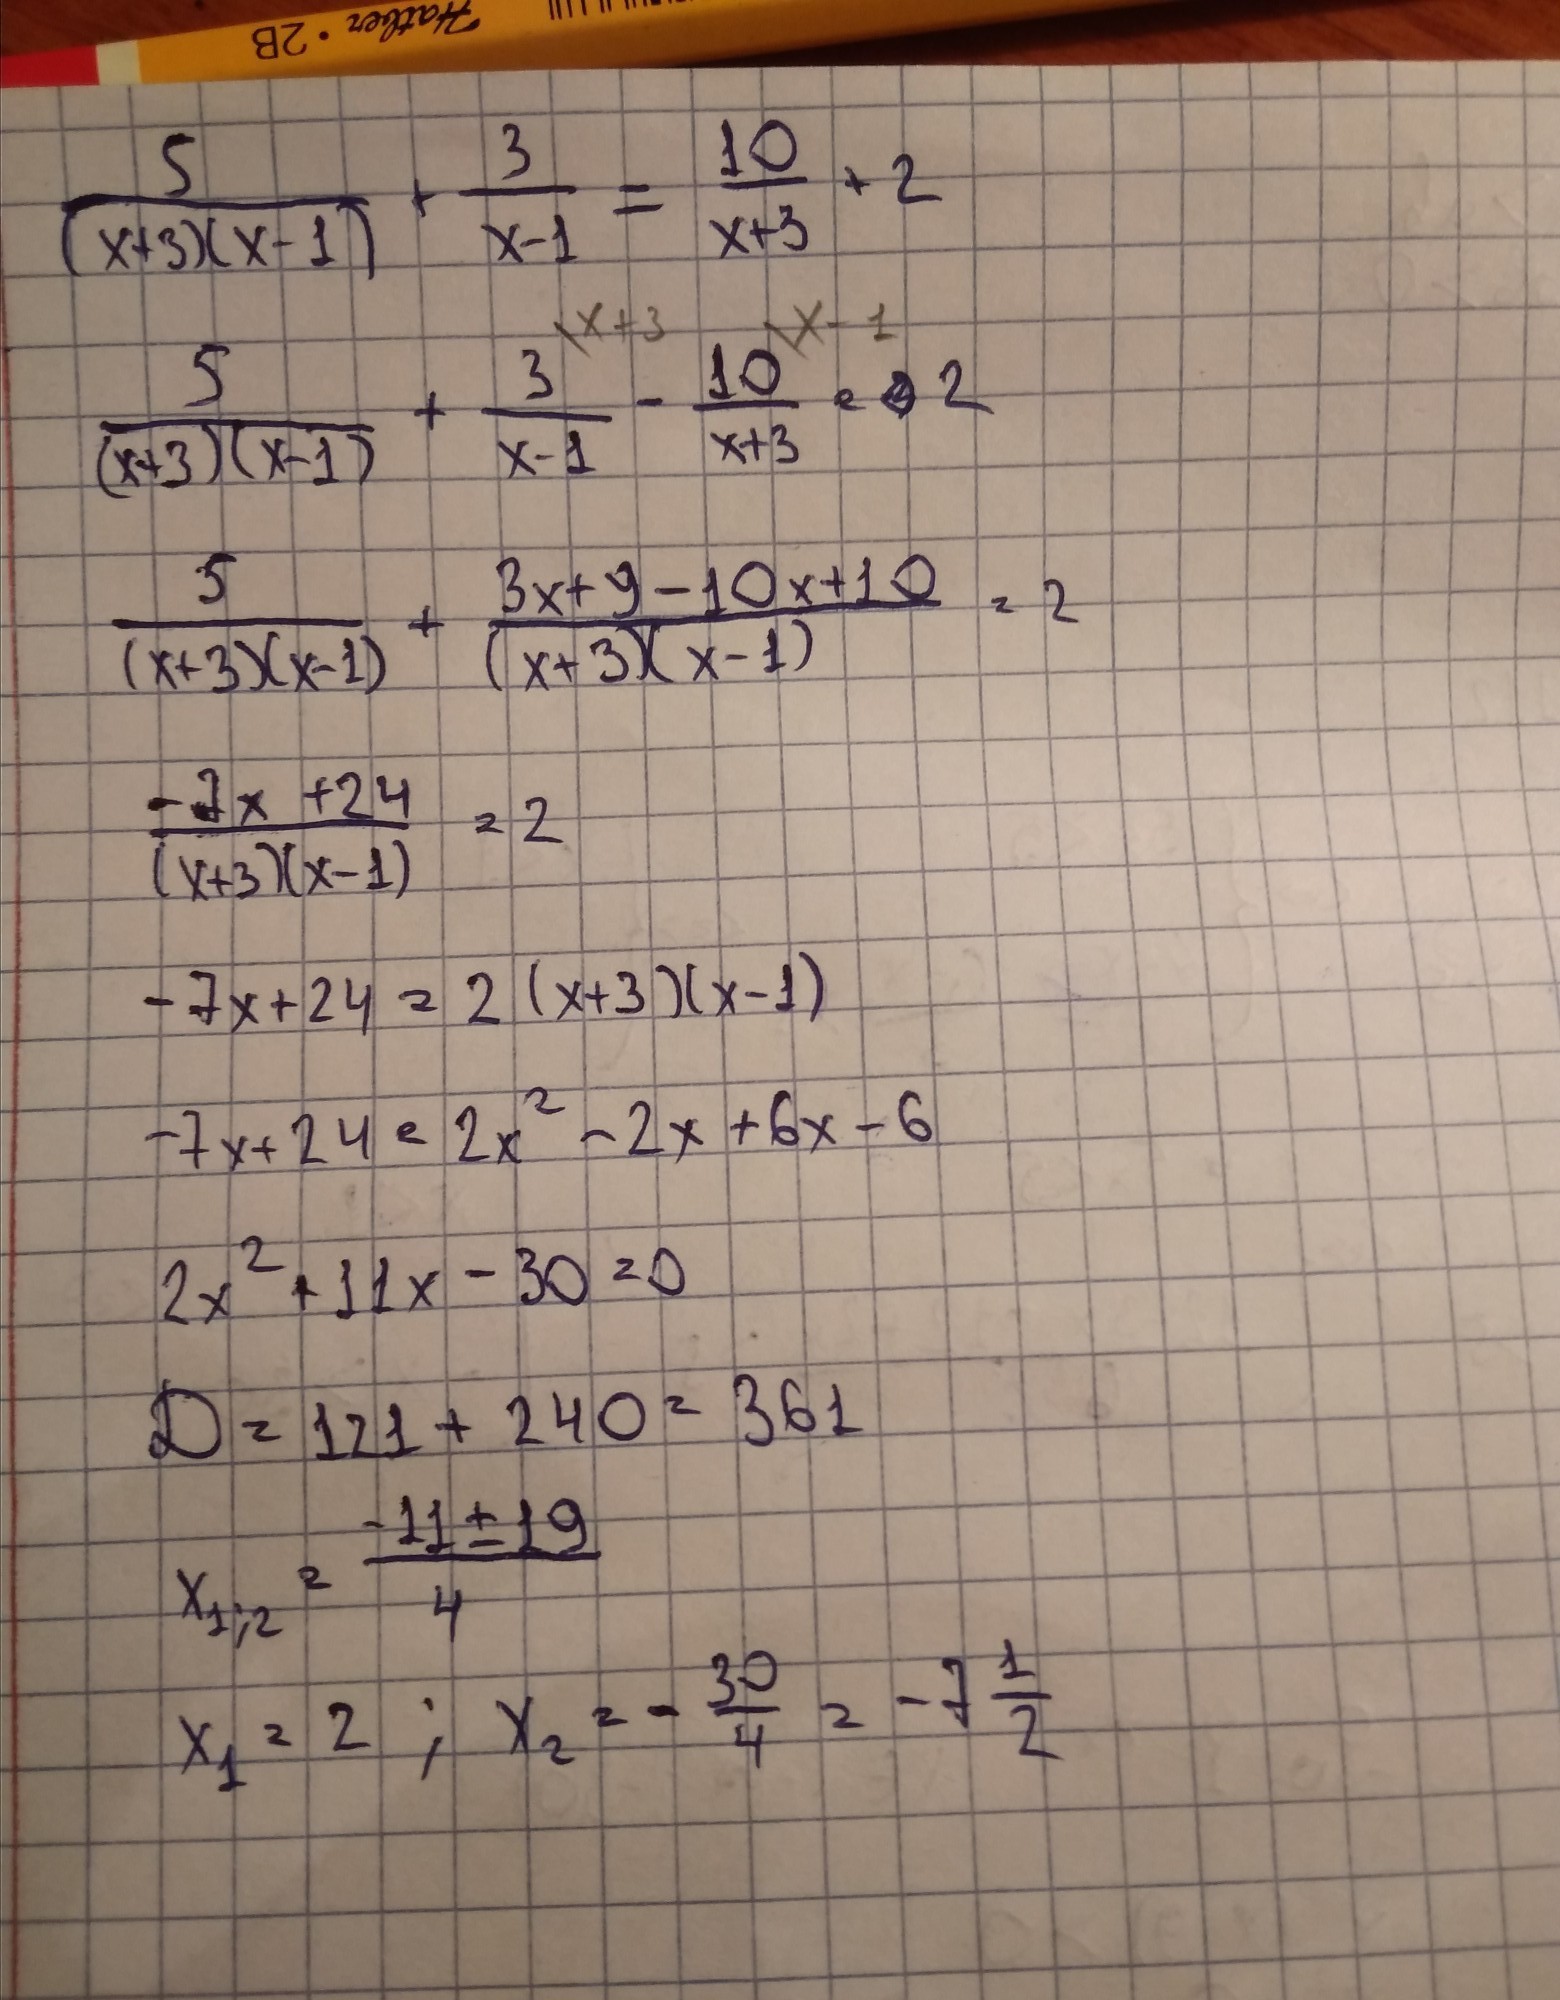 Hatber • 2B
5/((x+3)(x-1)) + 3/(x-1) = 10/(x+3) + 2
5/((x+3)(x-1)) + 3/(x-1) \x+3 - 10/(x+3) \x-1 = 2
5/((x+3)(x-1)) + (3x+9-10x+10)/((x+3)(x-1)) = 2
(-7x+24)/((x+3)(x-1)) = 2
-7x+24 = 2(x+3)(x-1)
-7x+24 = 2x² - 2x + 6x - 6
2x² + 11x - 30 = 0
D = 121 + 240 = 361
x₁;₂ = (-11±19)/4
x₁ = 2 ; x₂ = - 30/4 = -7 1/2